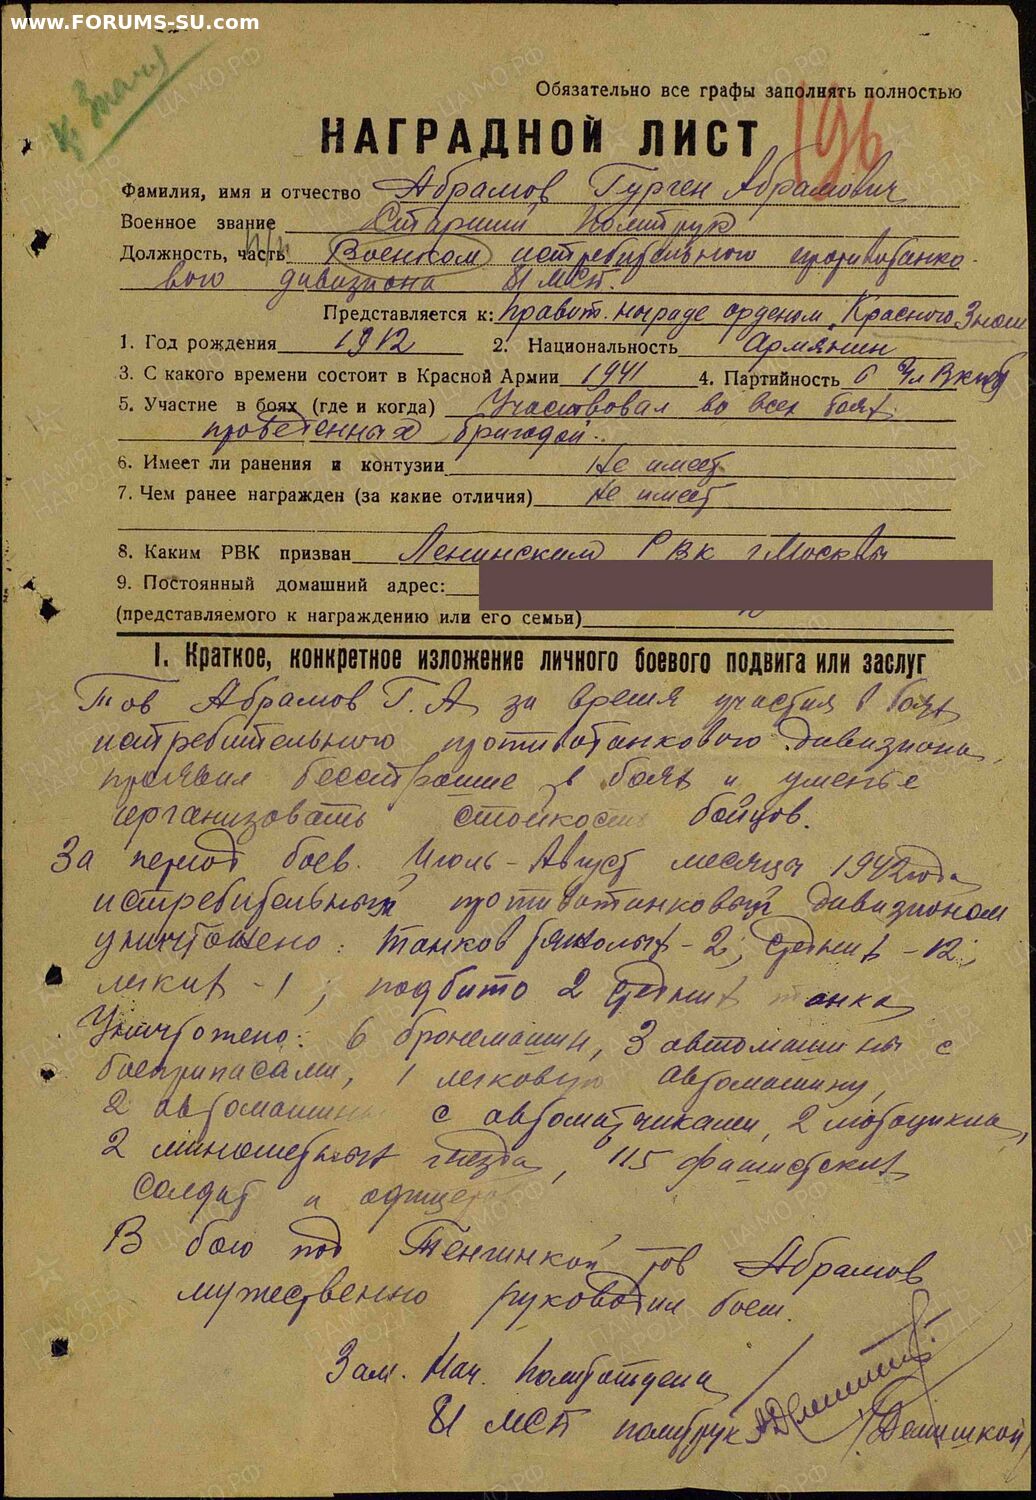 www.FORUMS-SU.com
К Знач
Обязательно все графы заполнять полностью
196
НАГРАДНОЙ ЛИСТ
Фамилия, имя и отчество Абрамов Гурген Абрамович
Военное звание Старший политрук
Должность, часть п/п Военком истребительного противотанко-
вого дивизиона 81 МСБ.
Представляется к: правит. награде орденом „Красного Знам
1. Год рождения 1912 2. Национальность Армянин
3. С какого времени состоит в Красной Армии 1941 4. Партийность Чл ВКП(б)
5. Участие в боях (где и когда) Участвовал во всех боях
проведенных бригадой.
6. Имеет ли ранения и контузии Не имеет
7. Чем ранее награжден (за какие отличия) Не имеет
8. Каким РВК призван Ленинским РВК г Москвы
9. Постоянный домашний адрес:
(представляемого к награждению или его семьи)
I. Краткое, конкретное изложение личного боевого подвига или заслуг
Тов Абрамов Г. А за время участия в боях
истребительного противотанкового дивизиона,
проявил бесстрашие в боях и уменье
организовать стойкость бойцов.
За период боев. Июль-Август месяца 1942 года
истребительным противотанковым дивизионом
уничтожено: танков тяжолых - 2; средних - 12;
легких - 1; подбито 2 средних танка
Уничтожено: 6 бронемашин, 3 автомашины с
боеприпасами, 1 легковую автомашину,
2 автомашины с автоматчиками, 2 мотоцикла,
2 минометных гнезда, 115 фашистских
солдат и офицеров
В бою под Тенгинкой тов Абрамов
мужественно руководил боем.
Зам. Нач. Политотдела
81 МСБ политрук